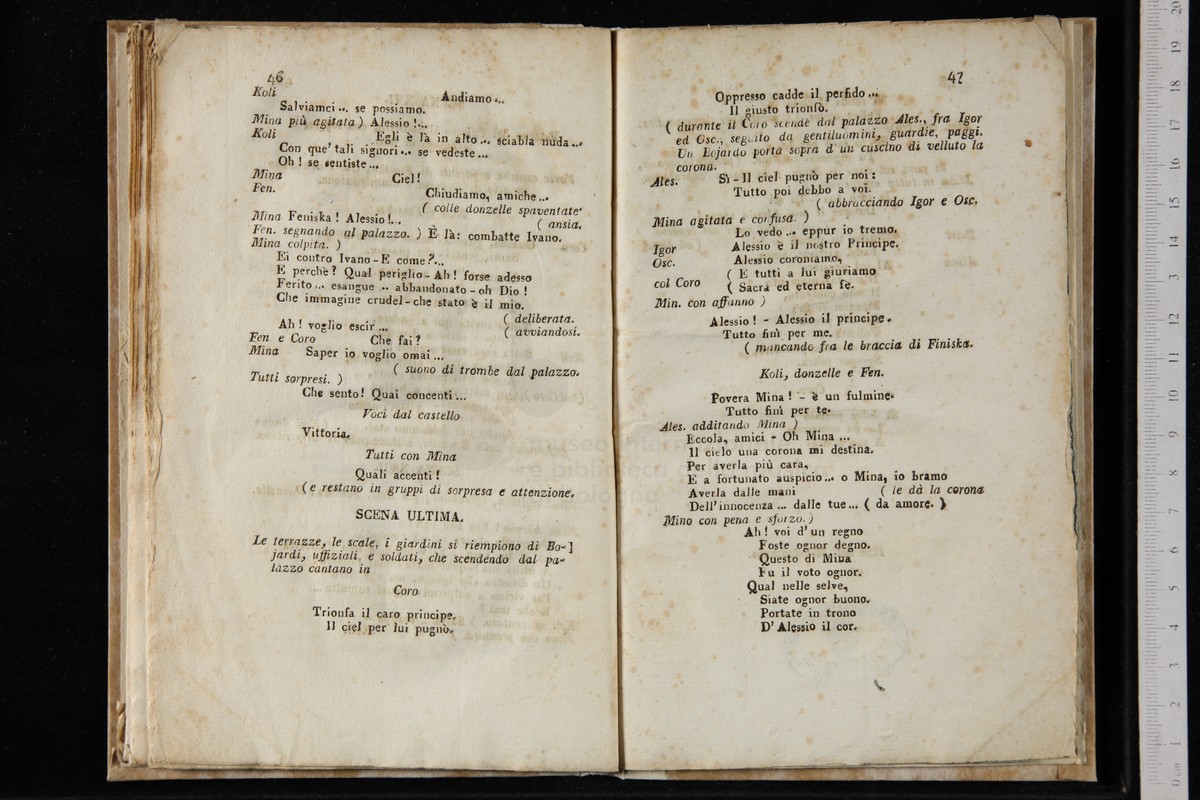 46
Koli Andiamo...
Salviamci... se possiamo.
Mina più agitata ) Alessio !...
Koli Egli è là in alto... sciabla nuda...
Con que' tali signori... se vedeste...
Oh ! se sentiste...
Mina Ciel!
Fen. Chiudiamo, amiche...
( colle donzelle spaventate
Mina Feniska ! Alessio !... ( ansia.
Fen. segnando al palazzo. ) È là: combatte Ivano.
Mina colpita. )
Ei contro Ivano-E come?...
E perchè? Qual periglio-Ah! forse adesso
Ferito... esangue ... abbandonato-oh Dio !
Che immagine crudel-che stato è il mio.
( deliberata.
Ah ! voglio escir ... ( avviandosi.
Fen e Coro Che fai ?
Mina Saper io voglio omai ...
( suono di trombe dal palazzo.
Tutti sorpresi. )
Che sento! Quai concenti...
Voci dal castello
Vittoria.
Tutti con Mina
Quali accenti !
( e restano in gruppi di sorpresa e attenzione.
SCENA ULTIMA.
Le terrazze, le scale, i giardini si riempiono di Bo-]
jardi, uffiziali, e soldati, che scendendo dal pa-
lazzo cantano in
Coro
Trionfa il caro principe.
Il ciel per lui pugnò.
47
Oppresso cadde il perfido...
Il giusto trionfò.
( durante il Coro scende dal palazzo Ales., fra Igor
ed Osc., seguito da gentiluomini, guardie, paggi.
Un Bojardo porta sopra d'un cuscino di velluto la
corona.
Ales. Sì-Il ciel pugnò per noi :
Tutto poi debbo a voi.
( abbracciando Igor e Osc.
Mina agitata e confusa. )
Lo vedo ... eppur io tremo.
Igor Alessio è il nostro Principe.
Osc. Alessio coroniamo,
col Coro ( E tutti a lui giuriamo
( Sacra ed eterna fè.
Min. con affanno )
Alessio ! - Alessio il principe.
Tutto finì per me.
( mancando fra le braccia di Finiska.
Koli, donzelle e Fen.
Povera Mina ! - è un fulmine.
Tutto finì per te.
Ales. additando Mina )
Eccola, amici - Oh Mina ...
Il cielo una corona mi destina.
Per averla più cara,
E a fortunato auspicio... o Mina, io bramo
Averla dalle mani ( le dà la corona
Dell'innocenza ... dalle tue... ( da amore. )
Mino con pena e sforzo. )
Ah ! voi d'un regno
Foste ognor degno.
Questo di Mina
Fu il voto ognor.
Qual nelle selve,
Siate ognor buono.
Portate in trono
D'Alessio il cor.